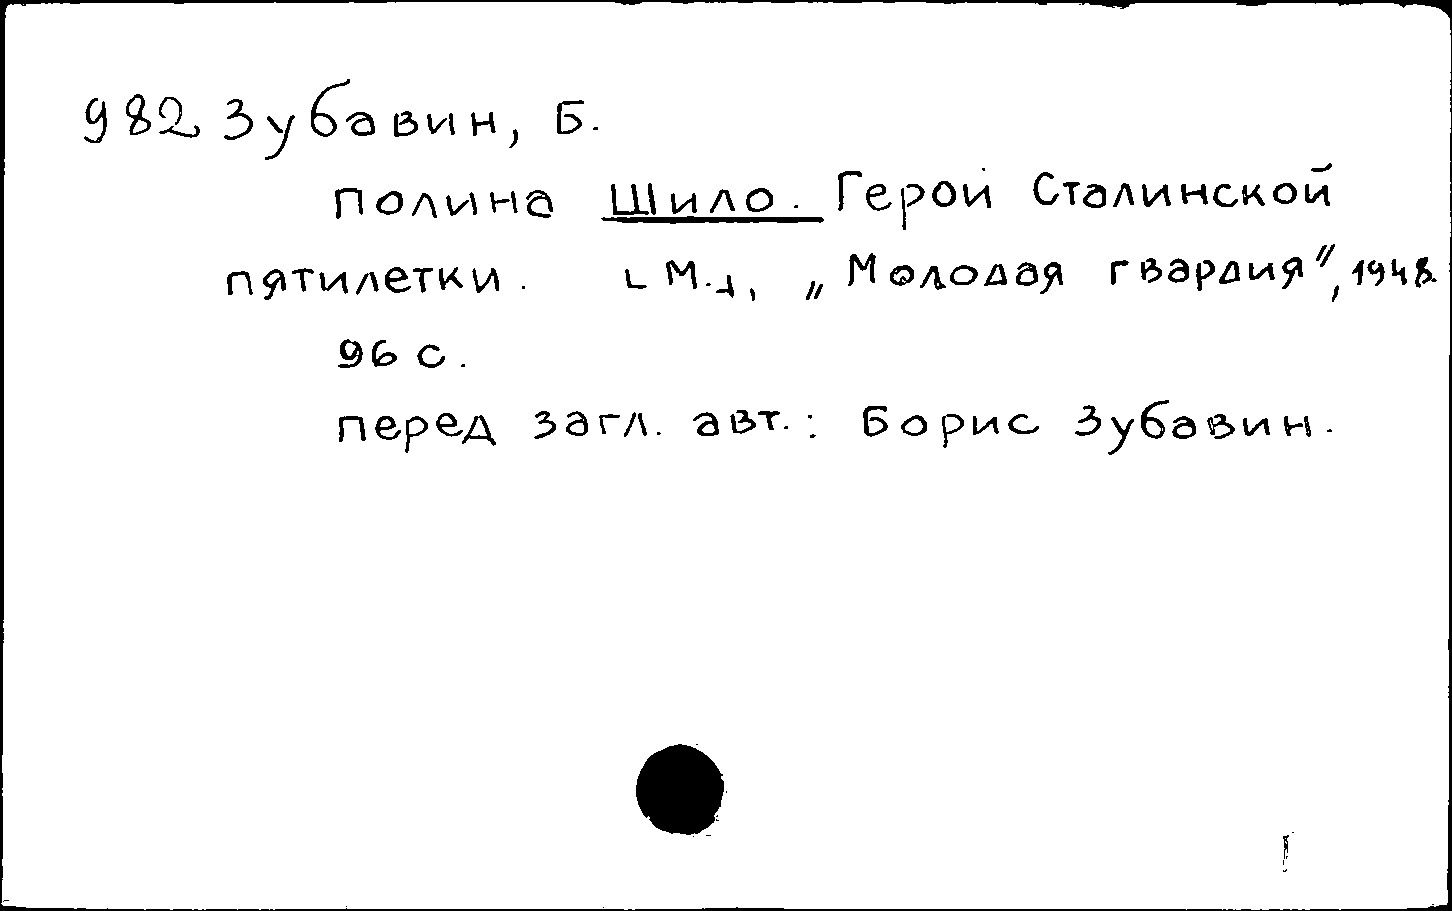 982 Зубавин, Б.
полина Шило. Герой Сталинской
пятилетки. [М.], „Молодая гвардия", 1948.
96 с.
перед загл. авт.: Борис Зубавин.